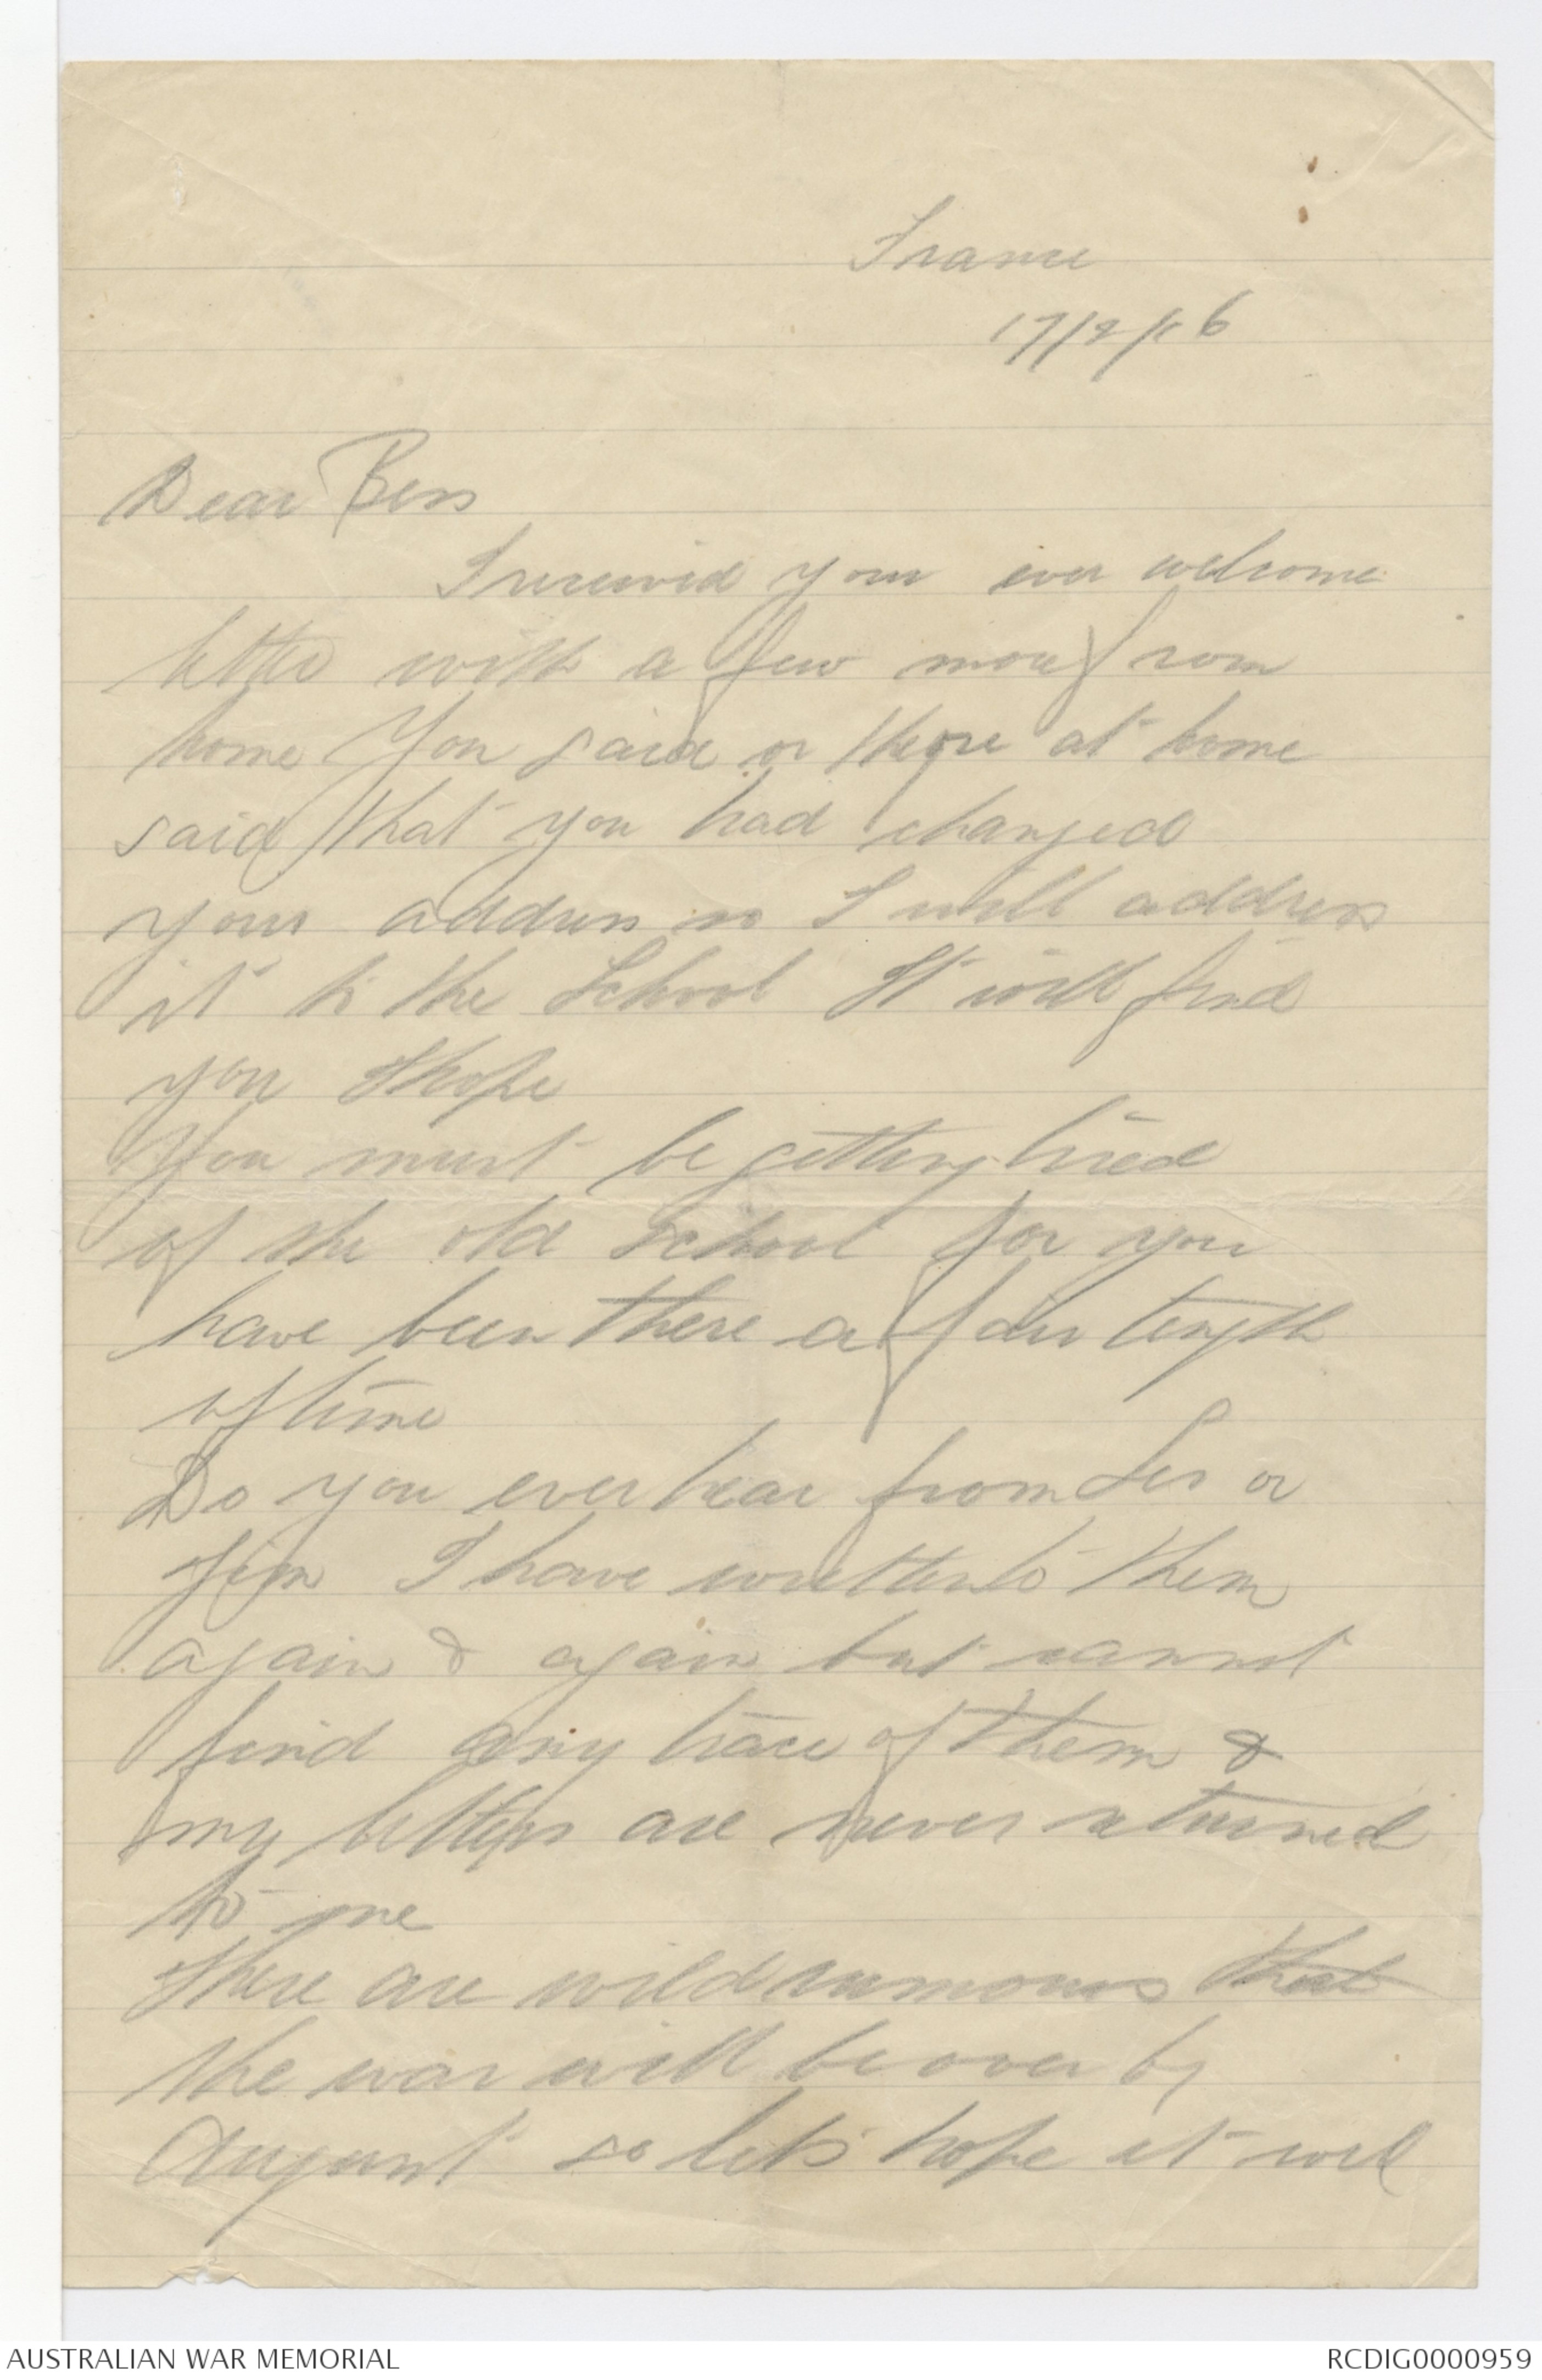 France
17/2/16
Dear Bess
I received your ever welcome
letter with a few more from
home You said or those at home
said that you had changed
your address so I will address
it to the School It will find
you I hope
You must be getting tired
of the old School for you
have been there a fair length
of time
Do you ever hear from Les or
Jim I have written to them
again & again but cannot
find any trace of them &
my letters are never returned
to me
There are wild rumours that
the war will be over by
August so let's hope it will
AUSTRALIAN WAR MEMORIAL
RCDIG0000959